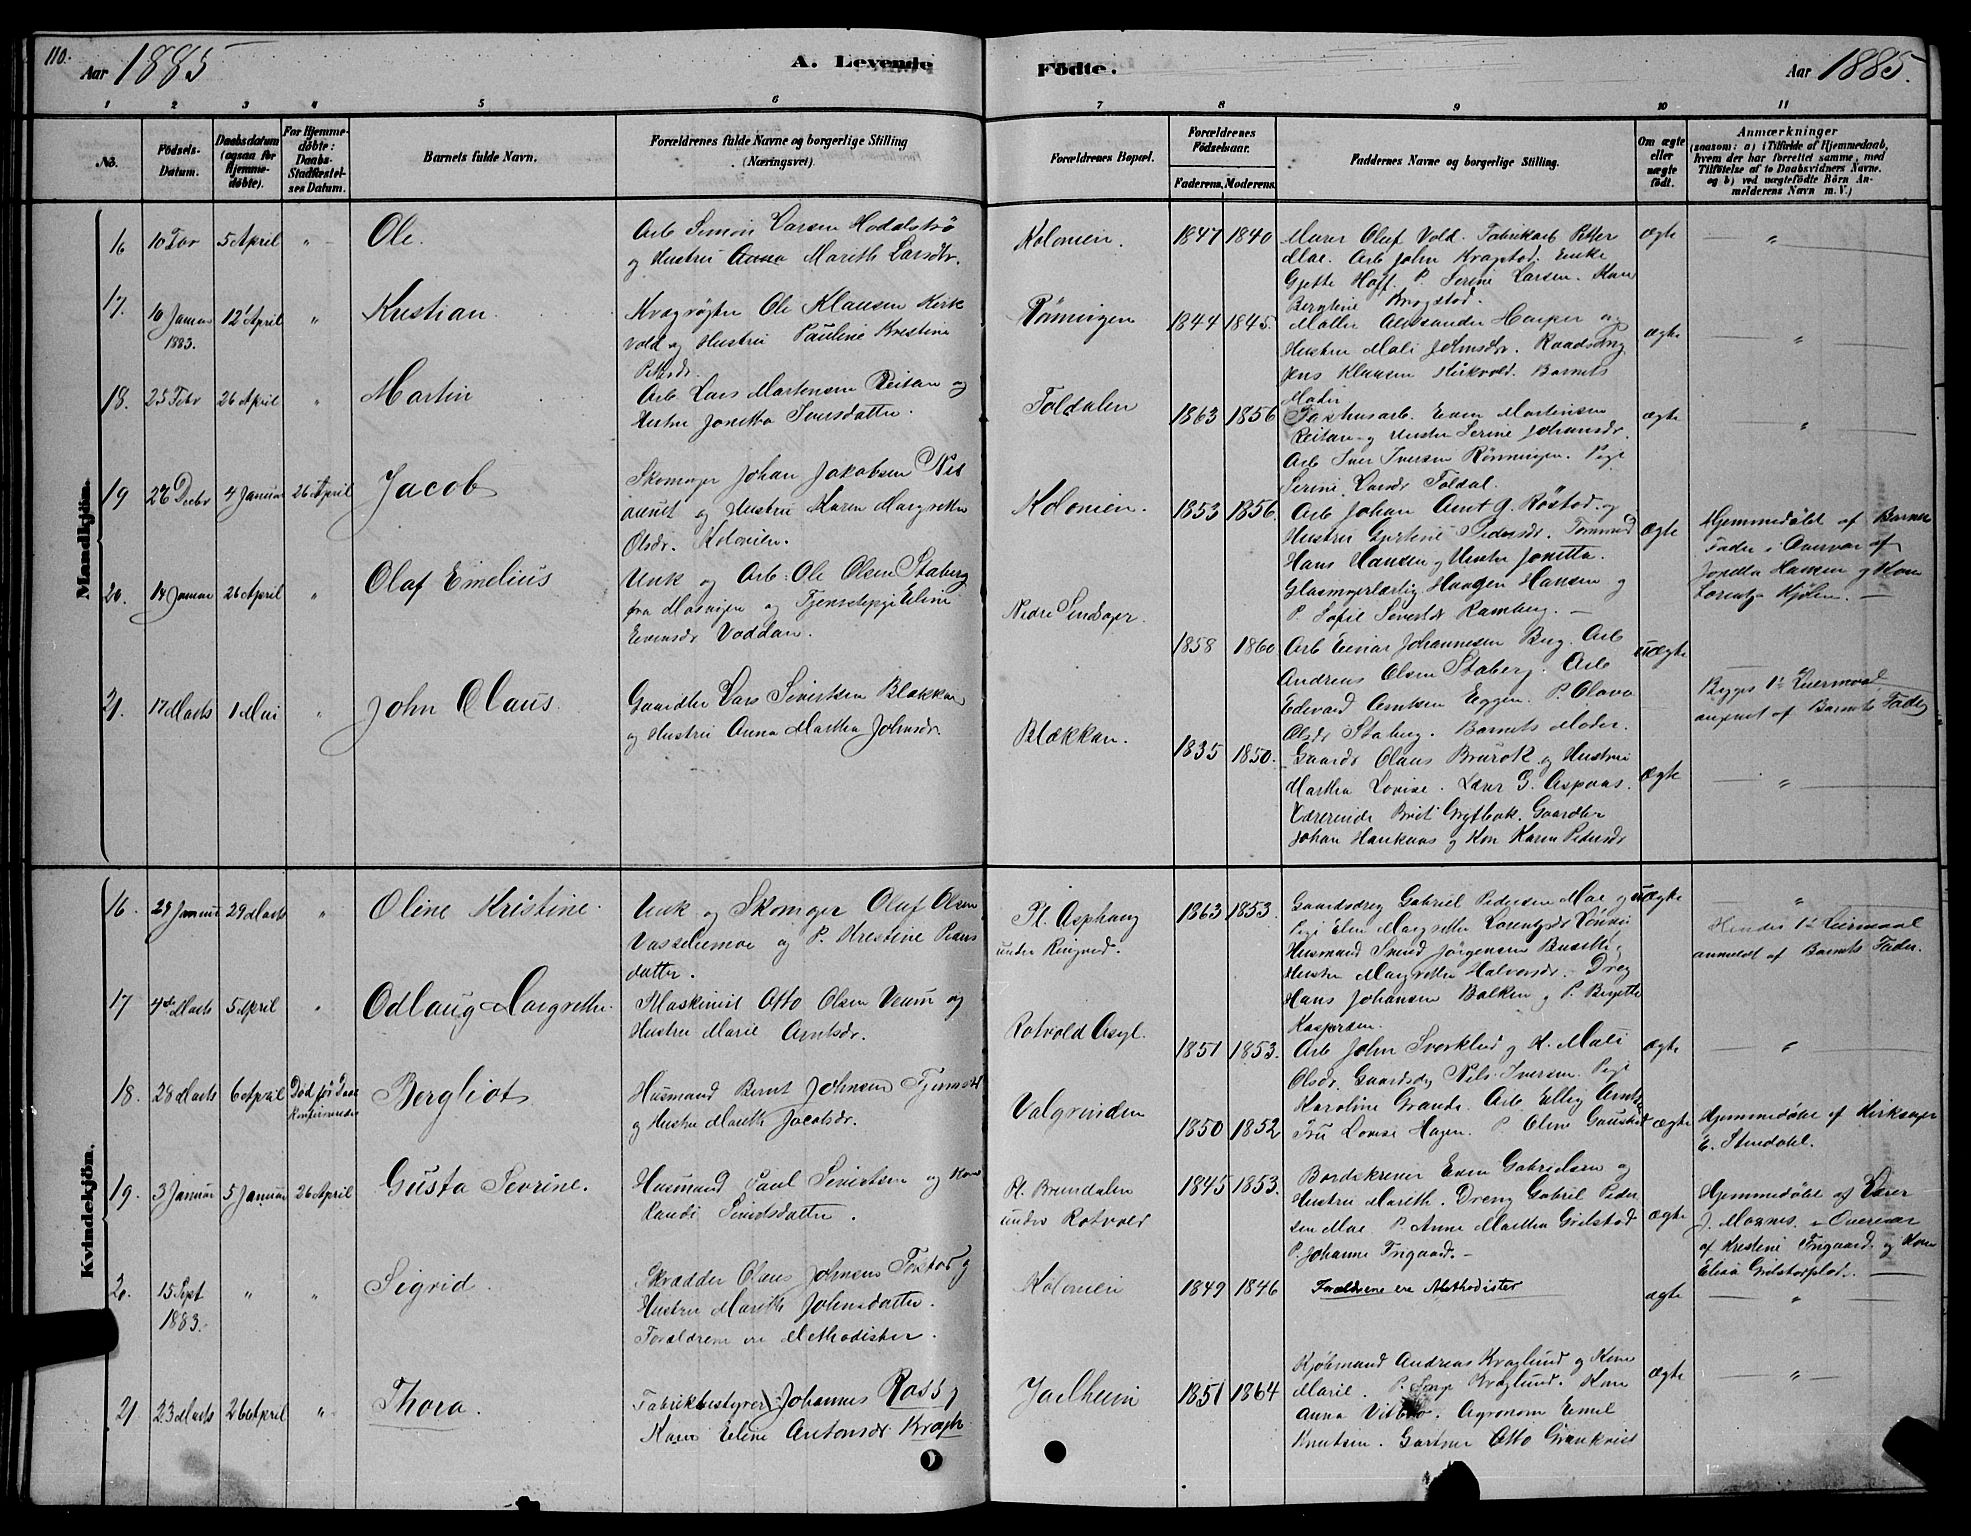 110.
Aar 1885
A. Levende
Födte.
Aar 1885.
1 2 3 4 5 6 7 8 9 10 11
No.
Födsels-Datum.
Daabsdatum (ogsaa for Hjemme-döbte).
For Hjemme-döbte: Daabs-Stadfæstel-ses Datum.
Barnets fulde Navn.
Forældrenes fulde Navne og borgerlige Stilling
(Næringsvei).
Forældrenes Bopæl.
Forældrenes Födselsaar.
Faderens. Moderens.
Faddernes Navne og borgerlige Stilling.
Om ægte eller uægte født.
Anmærkninger
(saasom: a) i Tilfælde af Hjemmedaab,
hvem der har forrettet samme, med
Tilföielse af to Daabsvidners Navne.
og b) ved uægtefödte Börn An-
melderens Navn m.V.)
Mandkjön.
16 10 Febr 5 April " Ole.
Arb Simon Larsen Hodalströ
og Hustru Anna Marith Larsdr.
Kolonien. 1847 1840
Murer Oluf Vold. Fabrikarb Petter
Moe. Arb John Kragstad. Enke
Gjette Hoff. P. Serine Larsen. Kone
Bergtine Brogstad.
ægte "
17. 10 Januar 1883. 12' April " Kristian.
Kvægrögter Ole Klausen Kirk
vold og Hustru Pauline Kristine
Petersdr.
Rönningen 1844 1845.
Møller Alexsander Harper og
Hustru Mali Johnsdr.
Jens Klausen Kirkvold. Barnets
Moder
ægte "
18. 25 Febr 26 April " Martin
Arb Lars Martensen Reitan og
Hustru Jonetta Iversdatter.
Foldalen 1863 1856
Even Martinsen
Reitan og Hustru Serine Johansdr.
Arb Iver Iversen Rönningen. Pige
Serine Larsdr Foldal.
ægte "
19 27 Decbr 4 Januar 26 April Jacob
Skomager Johan Jakobsen
og Hustru Karen Margrethe
Olsdr. Kolonien.
Kolonien. 1853 1856.
Arb Johan Arnt J. Röstad og
Hustru Gjertine Pedersdr.
Hans Hansen og Hustru Jonetta.
Haagen Hansen og
P. Sofie Sivertsdr Ramberg. —
ægte
Hjemmedöbt af Barnets
Fader i Overvær af
Jonetta Hansen og Kone
Lorentza Kjölen. —
20. 14 Januar 26 April " Olaf Emelius
Unk og Arb: Ole Olsen Staberg
fra Mosvigen og Tjenestepige Eline
Evensdr Voddan.
Nedre 1858 1860.
Arb Einar Johannesen Berg. Arb
Andreas Olsen Staberg. Arb
Edevard Arntsen Eggen. P. Olava
Olsdr Staberg. Barnets Moder.
uægte
Begges 1ste Leiermaal
angivet af Barnets Fader
21. 17 Marts 1 Mai " John Claus.
Gaardbr Lars Sivertsen Blækkan
og Hustru Anna Martha Johnsdr.
Blækkan. 1835 1850.
Gaardbr Claus Brurok og Hustru
Martha Lovise. Lærer G. Aspaas.
Lærerinde Brit Grytbak. Gaardbr
Johan Haukaas og Kon Karen Pedersdr
ægte "
Kvindekjön.
16. 29 Januar 29 Marts " Oline Kristine.
Unk og Skomager Olaf Olsen
Vasseliemoe og P. Kristine Peders
datter.
Pl. Asphaug
under Ringved. 1863 1853.
Gaardsdreng Gabriel Pedersen Moe og
Pige Elen Margrethe Lorentzdr
Husmand Sivert Jörgensen
Hustru Margrethe Halvorsdr. Dreng
Hans Johansen Balken og P. Birgitte
Kaspersen.
uægte "
Hendes 1ste Leiermaal
anmeldt af Barnets Fader.
17 4de Marts 5 April " Odlaug Margrethe.
Maskinist Otto Olsen Veum og
Hustru Marie Arntsdr.
Rotvold Asyl. 1851 1853.
Arb John Sverklid og H. Mali
Olsdr. Gaardsdg Nils Iversen. Pige
Karoline Grande. Arb
ægte "
18. 28 Marts 6 April Död för Daabs Konfirmation Bergliot
Husmand Bernt Johnsen
og Hustru Marith Jacobsdr.
Valgrinden 1850 1852
Fru Lovise Hagen. P. Oline
ægte
Hjemmedöbt af Kirksanger
E. Stendahl.
19. 3 Januar 5 Januar 26 April Gusta Sevrine.
Husmand Paul Sivertsen og Kone
Randi Sivertsdatter.
Pl. Brundalen
under Rotvold 1845 1853.
Bordskrever Even Gabrielsen og
Hustru Marith. Dreng Gabriel Peder
sen Moe P. Anne Martha Grilstad
P. Johanne Ingaard. —
ægte
Hjemmedöbt af Lærer
J. Moxnes i Overvær
af Kristine Ingaard og Kone
Elisa Grilstadplads. —
20. 15 Sept 1883. " " Sigrid.
Skrædder Olaus Johnsen Forbord og
Hustru Marith Johnsdatter.
Forældrene ere Methodister.
Kolonien 1849 1846
Forældrene ere Methodister
ægte "
21 23 Marts 26 April " Thora.
Fabrikbestyrer Johannes Ross og
Kone Eline Antonsdr. Krogh.
Jaelheim 1851 1864
Kjöbmand Andreas Kraglund og Kone
Marie. P. Kraglund. Kone
Anna Agronom Emil
Knutsen. Gartner Otto Grönkvist
ægte "